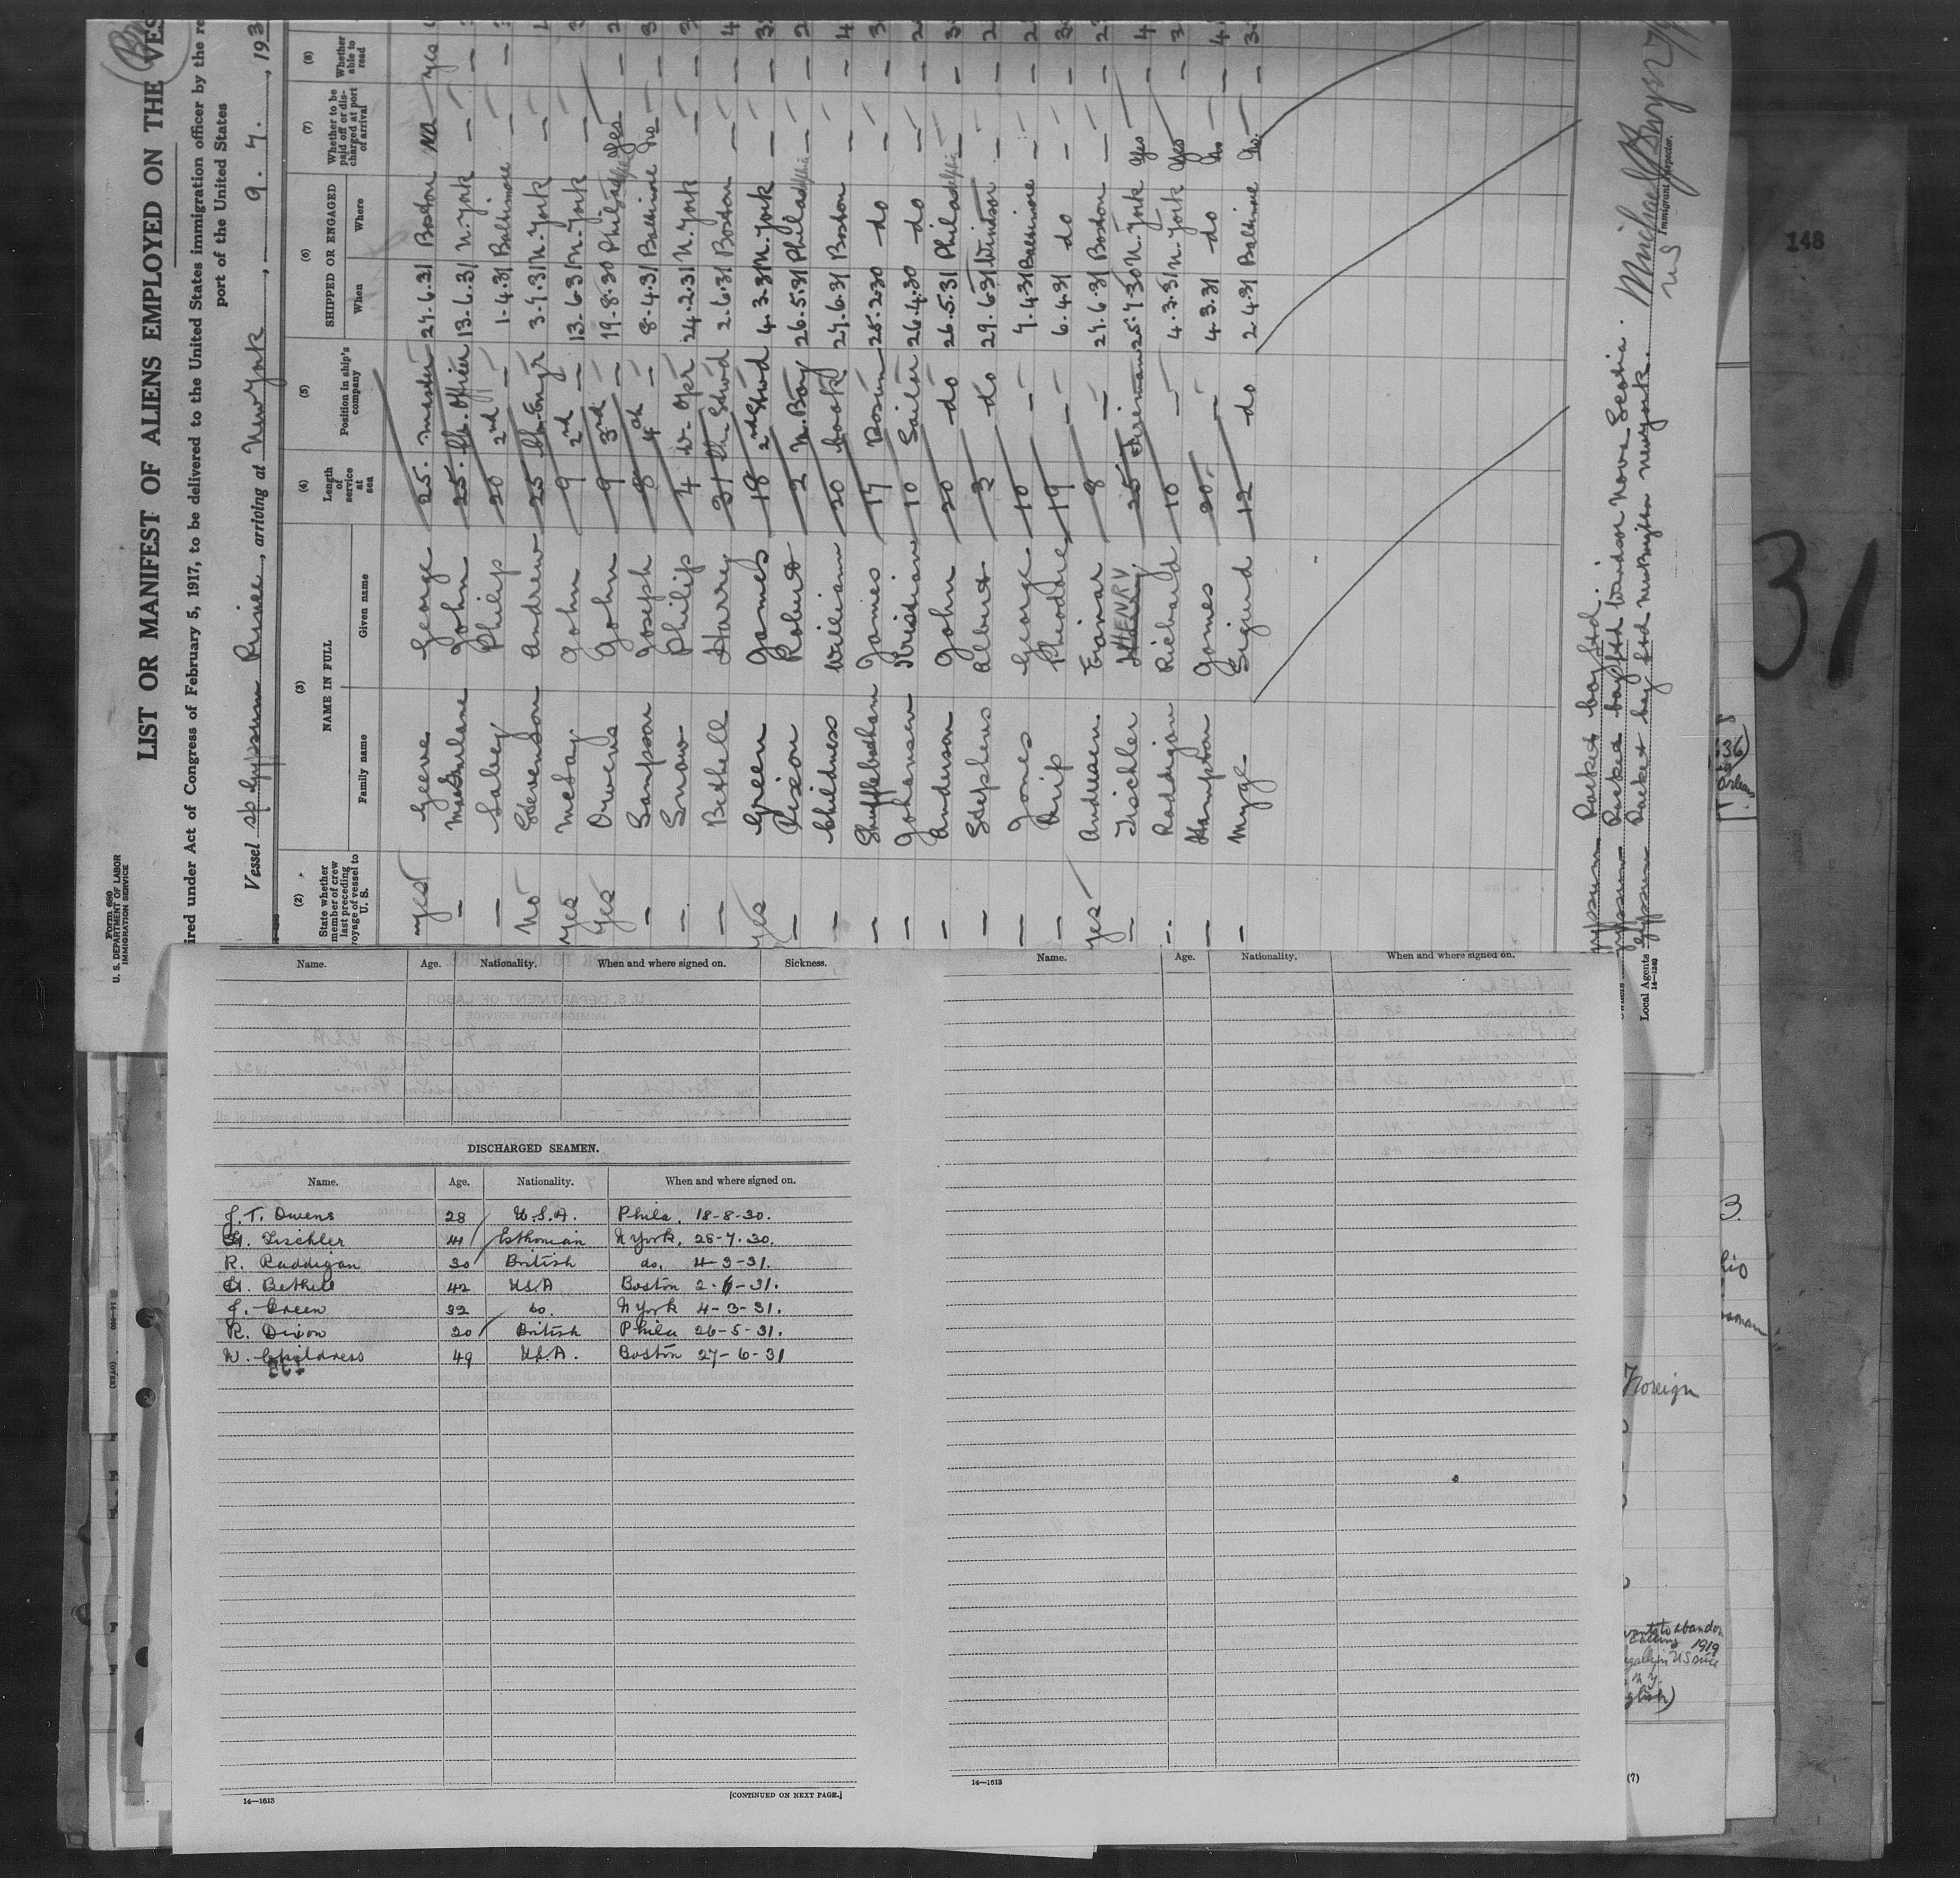 Form 680
U. S. DEPARTMENT OF LABOR
IMMIGRATION SERVICE
LIST OR MANIFEST OF ALIENS EMPLOYED ON THE VES
ired under Act of Congress of February 5, 1917, to be delivered to the United States immigration officer by the re
port of the United States
Vessel sp Gypsum Prince, arriving at New York, 9. 7. , 193
(2) (3) (4) (5) (6) (7) (8)
State whether member of crew last preceding voyage of vessel to U. S. NAME IN FULL Length of service at sea Position in ship's company SHIPPED OR ENGAGED Whether to be paid off or discharged at port of arrival Whether able to read
Family name Given name When Where
yes Geeve George 25 Master 27.6.31 Boston No yes
— MacFarlane John 25 Ch. Officer 13.6.31 N. York — —
— Saley Philip 20 2nd — 1.4.31 Baltimore — —
No Stevenson Andrew 25 Ch. Engr 3.7.31 N. York — —
Yes McKay John 9 2nd — 13.6.31 N. York — —
Yes Owens John 9 3rd — 19.8.30 Philadelphia Yes —
— Sampson Joseph 8 4th — 8.4.31 Baltimore No —
— Snow Philip 4 W. Opr 24.2.31 N. York — —
— Bethell Harry 31 Ch. Stwd 2.6.31 Boston — —
yes Green James 18 2nd Stwd 4.3.31 N. York — —
— Dixon Robert 2 M. Boy 26.5.31 Philadelphia — —
— Childress William 20 Cook 27.6.31 Boston — —
— Shufflebotham James 17 Bosun 25.2.30 do — —
— Johansen Kristian 10 Sailor 26.4.30 do — —
— Anderson John 20 do 26.5.31 Philadelphia — —
— Stephens Albert 3 do 29.6.31 Windsor — —
— Jones George 10 — 7.4.31 Baltimore — —
— Theodore 19 — 6.4.31 do — —
yes Andresen Einar 8 — 27.6.31 Boston — —
— Tischler HENRY 25 Fireman 25.7.30 N. York Yes —
— Raddigan Richard 10 — 4.3.31 N. York Yes —
— Hampton James 20 — 4.3.31 do No —
— Sigurd 12 do 2.4.31 Baltimore No —
Gypsum Packet Coy Ltd.
Gypsum Packet Coy Ltd Windsor Nova Scotia.
Local Agents Gypsum Packet Coy Ltd New Brighton New York.
14—1240
Immigrant Inspector.
Name. Age. Nationality. When and where signed on. Sickness.
DISCHARGED SEAMEN.
Name. Age. Nationality. When and where signed on.
J. T. Owens 28 U.S.A. Phila. 18-8-30.
H. Tischler 41 Esthonian N York, 25-7.30.
R. Raddigan 30 British do. 4-3-31.
H. Bethell 42 USA Boston 2-6-31.
J. Green 32 do. N York 4-3-31.
R. Dixon 20 British Phila 26-5-31.
W. Childress 49 U.S.A. Boston 27-6-31
14—1613 [CONTINUED ON NEXT PAGE.]
Name. Age. Nationality. When and where signed on.
14—1613
148
31
Orleans
3.
Foreign
wants to abandon
calling 1919
(?)